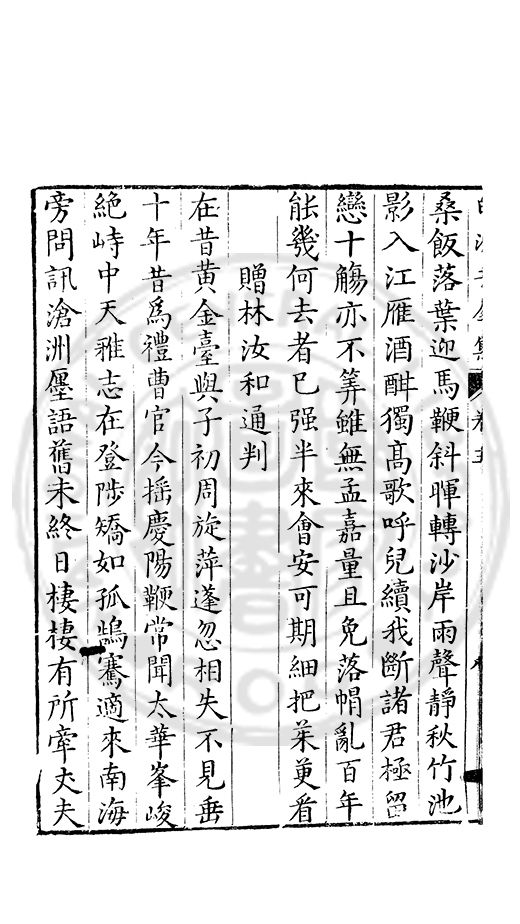 桑飯落葉迎馬鞭斜暉轉沙岸雨聲靜秋竹池
影入江雁酒酣獨高歌呼兒續我斷諸君極留
戀十觴亦不筭雖無孟嘉量且免落帽亂百年
能幾何去者已强半來會安可期細把茱萸看
贈林汝和通判
在昔黄金臺與子初周旋萍蓬忽相失不見垂
十年昔爲禮曹官今揺慶陽鞭常聞太華峯峻
絶峙中天雅志在登陟矯如孤鵠騫適來南海
旁問訊滄洲壥語舊未終日棲棲有所牽丈夫